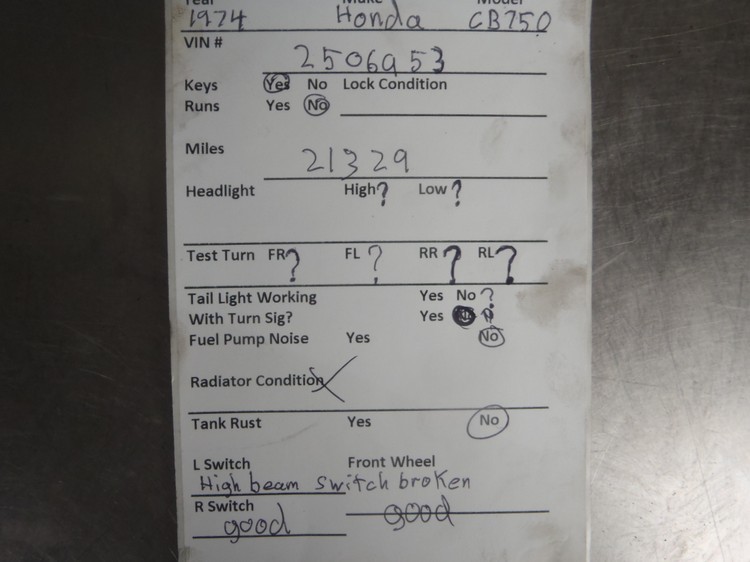 Year Make Model
1974 Honda CB750
VIN #
2506953
Keys Yes No Lock Condition
Runs Yes No
Miles
21329
Headlight High? Low?
Test Turn FR? FL? RR? RL?
Tail Light Working Yes No?
With Turn Sig? Yes ?
Fuel Pump Noise Yes No
Radiator Condition
Tank Rust Yes No
L Switch Front Wheel
High beam switch broken
R Switch
good good